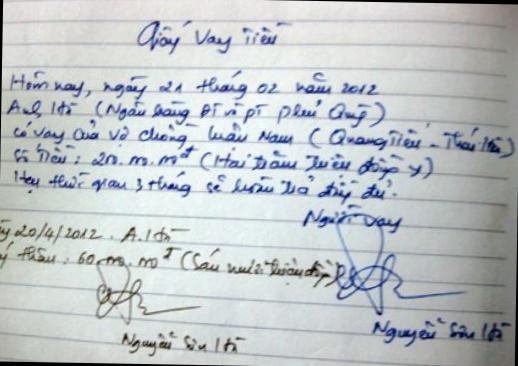 Giấy Vay Tiền
Hôm nay, ngày 21 tháng 02 năm 2012
Anh Hà (Ngân hàng Phủ Quỳ)
có vay của vợ chồng Luân Nam (Quang Tiến - Thái Hòa)
Số tiền: 200.000.000đ (Hai trăm triệu đồng)
Hẹn thời gian 3 tháng sẽ hoàn trả đầy đủ.
Người vay
20/4/2012. A. Hà
thêm: 60.000.000đ (Sáu mươi triệu đồng)
Nguyễn Sơn Hà
Nguyễn Sơn Hà